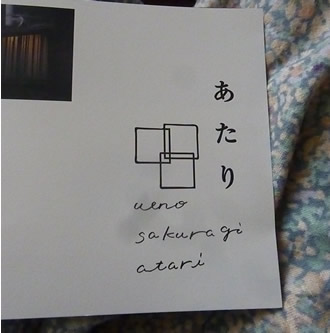 あたり
ueno
sakuragi
atari